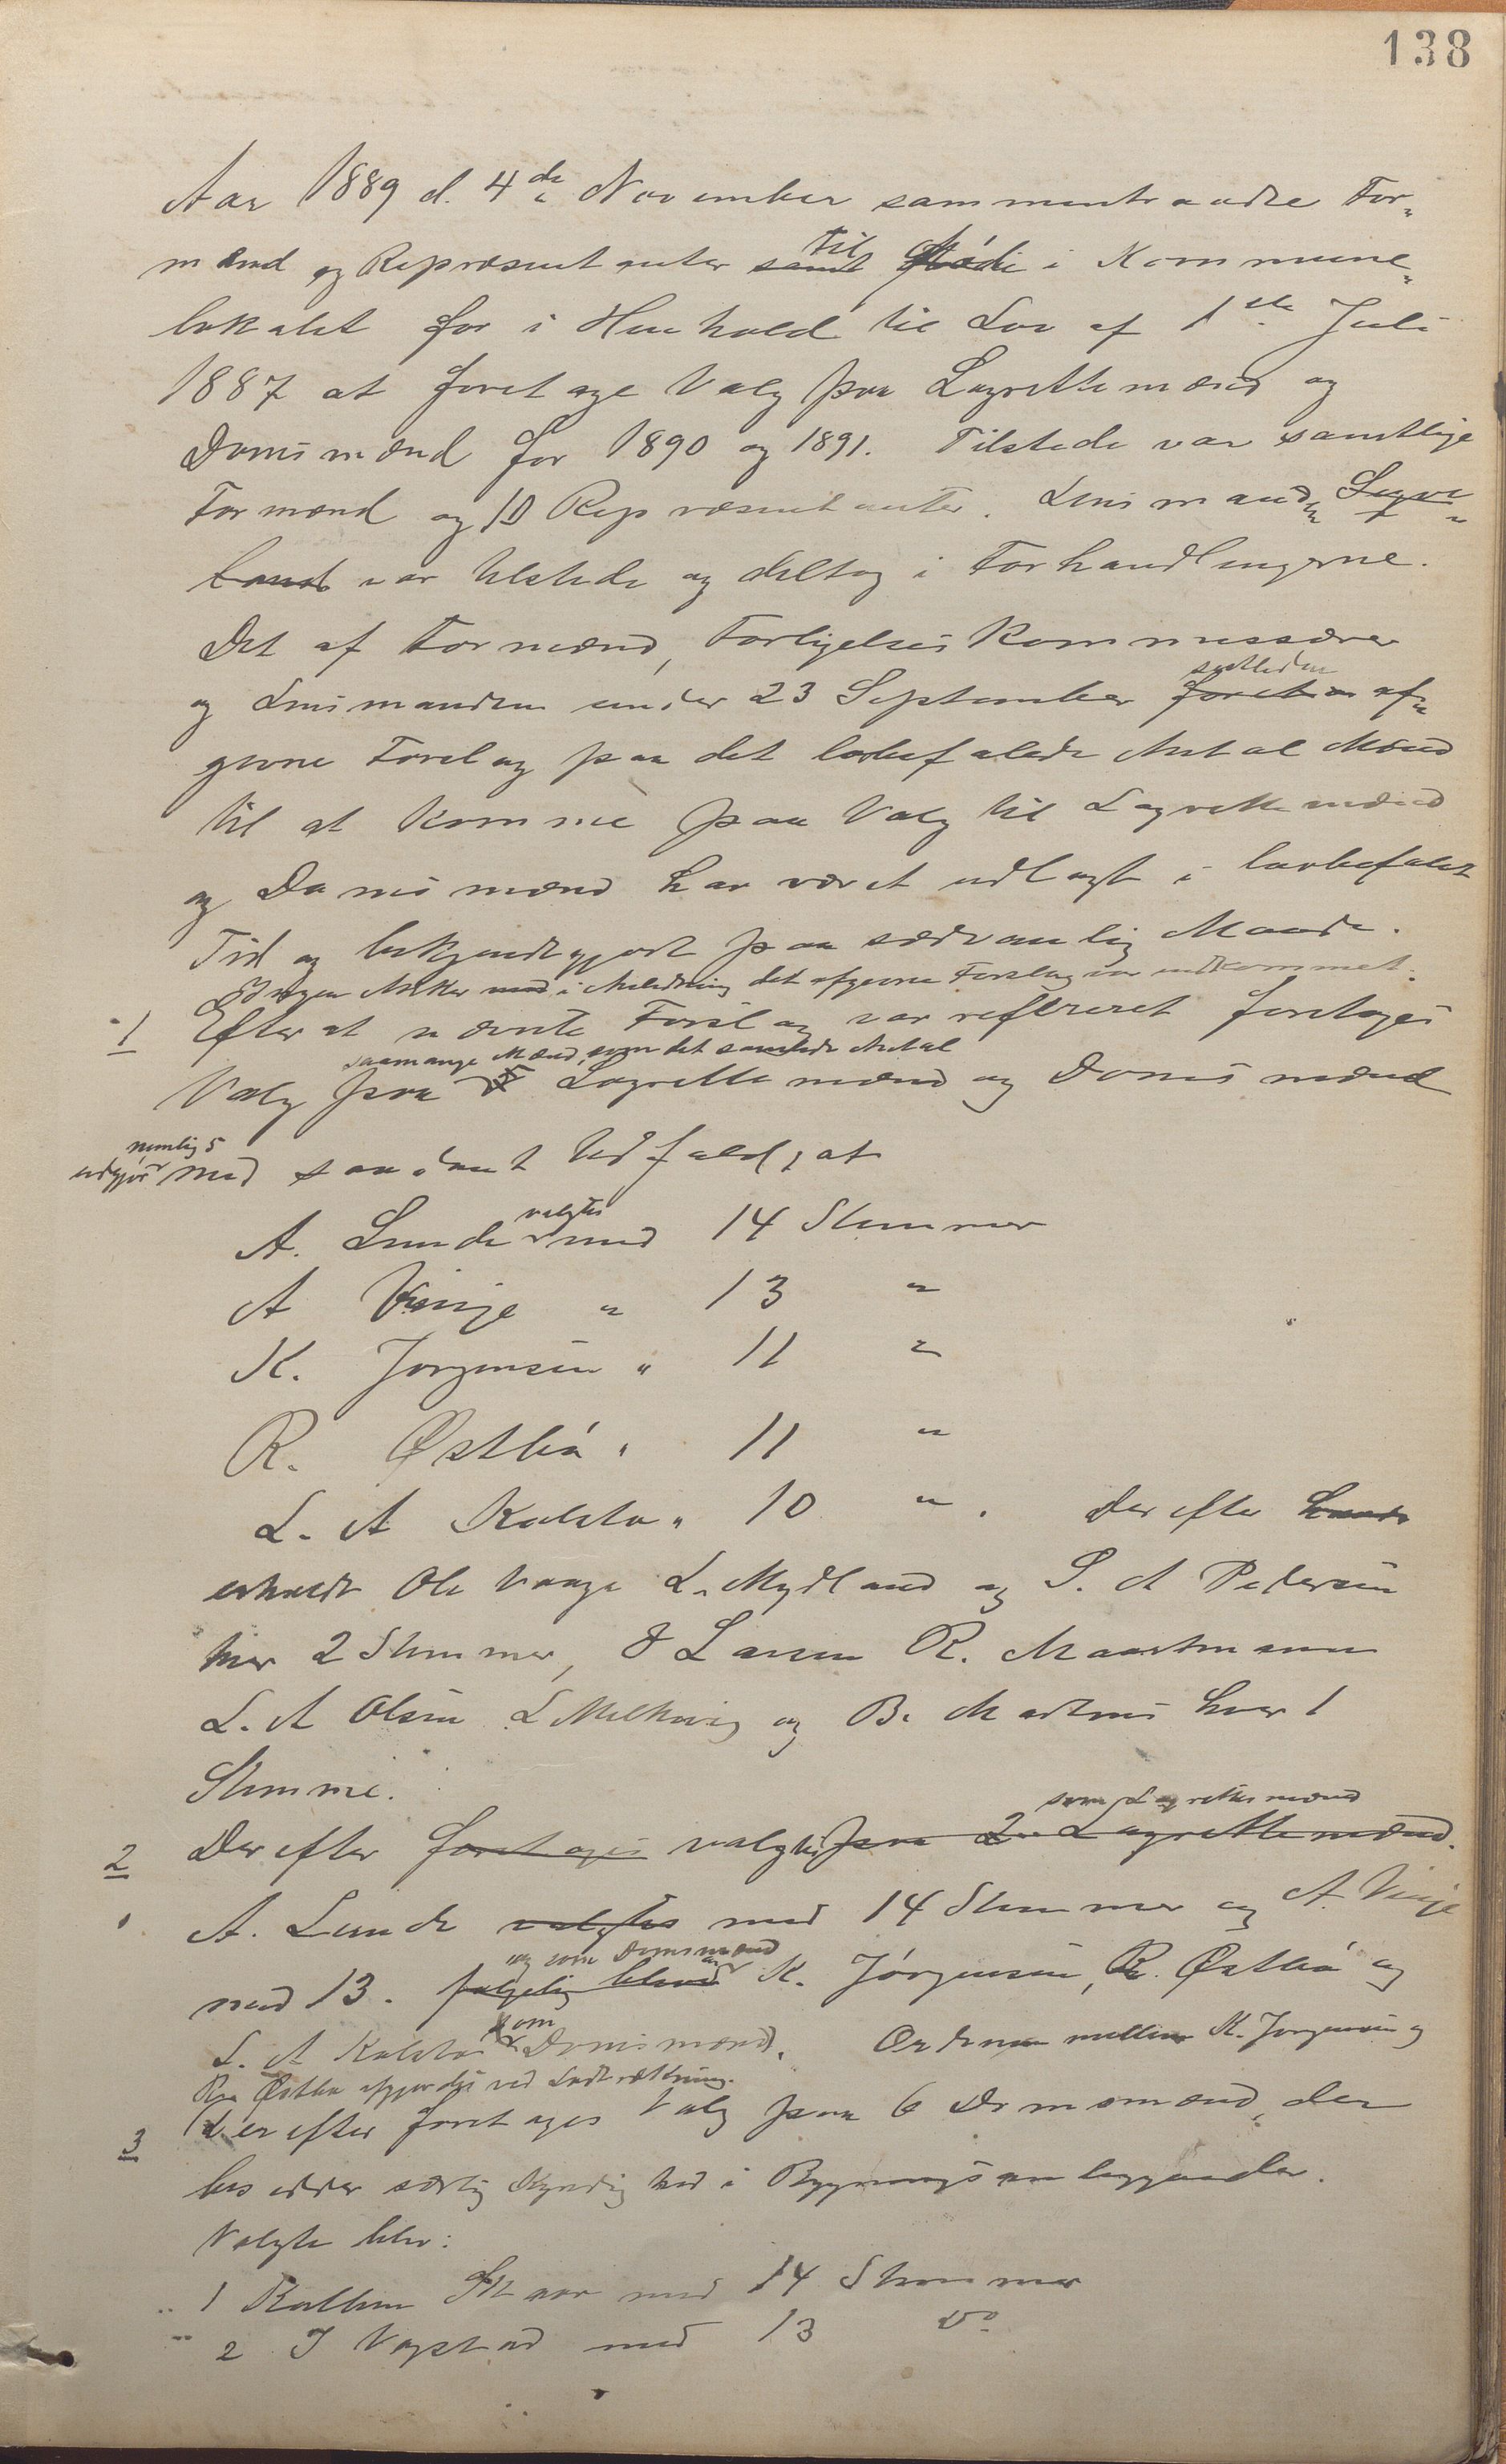 138
Aar 1889 d. 4de November sammentraadte For-
mænd og Repræsentanter samt til Møde i Kommune-
lokalet for i Henhold til Lov af 1ste Juli
1887 at foretage Valg paa Lagrettemænd og
Domsmænd for 1890 og 1891. Tilstede var samtlige
Formænd og 10 Repræsentanter. Lensmanden
land var tilstede og deltog i Forhandlingerne.
Det af Formænd, Forligelses Kommissærer
og Lensmanden under 23 September sidstleden af-
givne Forslag paa det lovbefalede Antal Mænd
til at komme paa Valg til Lagrettemænd
og Domsmænd har været udlagt i lovbefalet
Tid og bekjendtgjort paa sædvanlig Maade.
Ingen Anker i Anledning det afgivne Forslag var indkommet.
1 Efter at nævnte Forslag var refereret foretoges
saamange Mænd, som det samlede Antal
Valg paa Lagrettemænd og Domsmænd
nemlig 5
udgjør med saadant Udfald, at
A. Lunde valgtes med 14 Stemmer
A Vinje " 13 "
K. Jørgensen " 11 "
R. Østbø " 11 "
L. A Kalstø " 10 ". Derefter
erholdt Ole Vaage L. Mydland og S. A Pedersen
hver 2 Stemmer, O Larsen R. Maartmann
L. A Olsen L Melkevig og B. Madsen hver 1
Stemme.
som Lagrettemænd
2 Derefter foretoges valgtes paa 2 Lagrettemænd.
A. Lunde valgtes med 14 Stemmer og A. Vinje
og som Domsmænd
med 13. følgelig blev K. Jørgensen, R. Østbø og
L. A Kalstø som Domsmænd. Ordenen mellem K. Jørgensen og
R. Østbø afgjordes ved Lodtrækning.
3 Derefter foretoges Valg paa 6 Domsmænd, der
besidder særlig Kyndighed i Bygningsanliggender.
Valgte blev:
1 Kolben Skaar med 14 Stemmer
2 J Vagstad med 13 Do